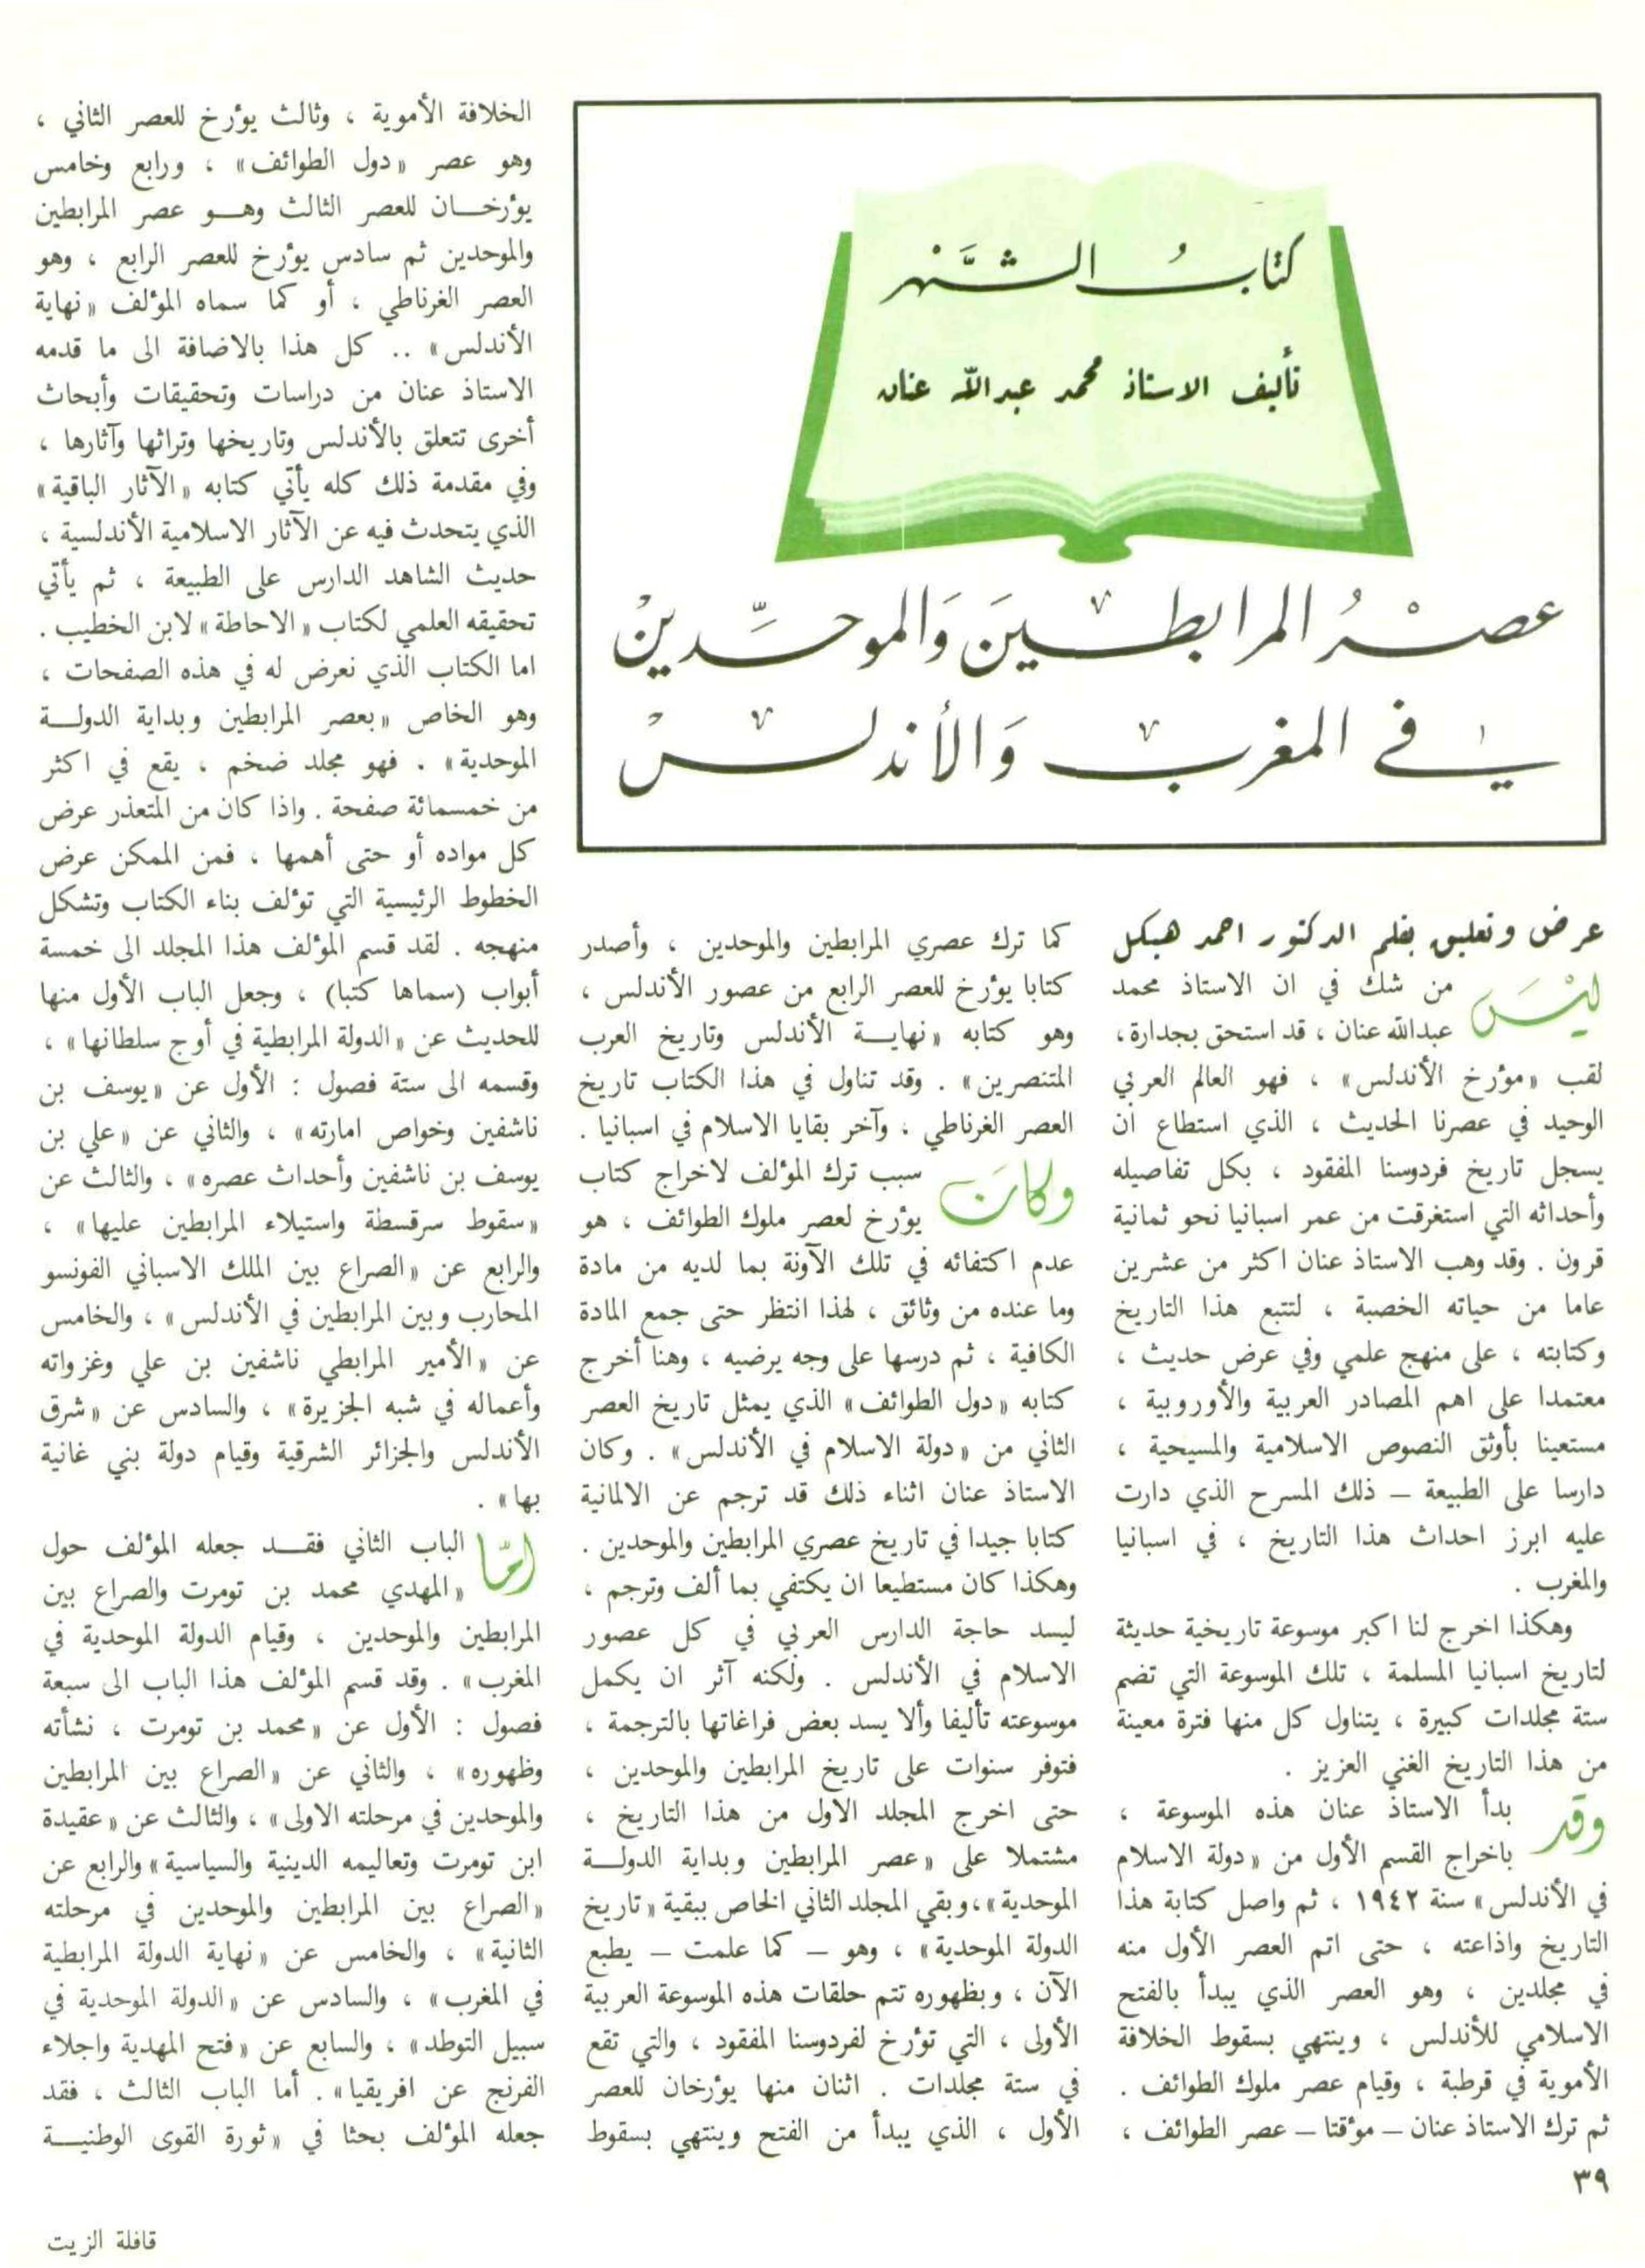 كتاب الشهر
تأليف الاستاذ محمد عبدالله عنان
عصر المرابطين والموحدين
في المغرب والأندلس
عرض وتعليق بقلم الدكتور احمد هيكل
ليس من شك في ان الاستاذ محمد
عبدالله عنان ، قد استحق بجدارة ،
لقب «مؤرخ الأندلس» ، فهو العالم العربي
الوحيد في عصرنا الحديث ، الذي استطاع ان
يسجل تاريخ فردوسنا المفقود ، بكل تفاصيله
وأحداثه التي استغرقت من عمر اسبانيا نحو ثمانية
قرون . وقد وهب الاستاذ عنان اكثر من عشرين
عاما من حياته الخصبة ، لتتبع هذا التاريخ
وكتابته ، على منهج علمي وفي عرض حديث ،
معتمدا على اهم المصادر العربية والأوروبية ،
مستعينا بأوثق النصوص الاسلامية والمسيحية ،
دارسا على الطبيعة – ذلك المسرح الذي دارت
عليه ابرز احداث هذا التاريخ ، في اسبانيا
والمغرب .
وهكذا اخرج لنا اكبر موسوعة تاريخية حديثة
لتاريخ اسبانيا المسلمة ، تلك الموسوعة التي تضم
ستة مجلدات كبيرة ، يتناول كل منها فترة معينة
من هذا التاريخ الغني العزيز .
وقد بدأ الاستاذ عنان هذه الموسوعة ،
باخراج القسم الأول من «دولة الاسلام
في الأندلس» سنة ١٩٤٢ ، ثم واصل كتابة هذا
التاريخ واذاعته ، حتى اتم العصر الأول منه
في مجلدين ، وهو العصر الذي يبدأ بالفتح
الاسلامي للأندلس ، وينتهي بسقوط الخلافة
الأموية في قرطبة ، وقيام عصر ملوك الطوائف .
ثم ترك الاستاذ عنان – مؤقتا – عصر الطوائف ،
كما ترك عصري المرابطين والموحدين ، وأصدر
كتابا يؤرخ للعصر الرابع من عصور الأندلس ،
وهو كتابه «نهايـــة الأندلس وتاريخ العرب
المتنصرين» . وقد تناول في هذا الكتاب تاريخ
العصر الغرناطي ، وآخر بقايا الاسلام في اسبانيا .
وكان سبب ترك المؤلف لاخراج كتاب
يؤرخ لعصر ملوك الطوائف ، هو
عدم اكتفائه في تلك الآونة بما لديه من مادة
وما عنده من وثائق ، لهذا انتظر حتى جمع المادة
الكافية ، ثم درسها على وجه يرضيه ، وهنا أخرج
كتابه «دول الطوائف» الذي يمثل تاريخ العصر
الثاني من «دولة الاسلام في الأندلس» . وكان
الاستاذ عنان اثناء ذلك قد ترجم عن الالمانية
كتابا جيدا في تاريخ عصري المرابطين والموحدين .
وهكذا كان مستطيعا ان يكتفي بما ألف وترجم ،
ليسد حاجة الدارس العربي في كل عصور
الاسلام في الأندلس . ولكنه آثر ان يكمل
موسوعته تأليفا وألا يسد بعض فراغاتها بالترجمة ،
فتوفر سنوات على تاريخ المرابطين والموحدين ،
حتى اخرج المجلد الاول من هذا التاريخ ،
مشتملا على «عصر المرابطين وبداية الدولـــة
الموحدية» ، وبقي المجلد الثاني الخاص ببقية «تاريخ
الدولة الموحدية» ، وهو – كما علمت – يطبع
الآن ، وبظهوره تتم حلقات هذه الموسوعة العربية
الأولى ، التي تؤرخ لفردوسنا المفقود ، والتي تقع
في ستة مجلدات . اثنان منها يؤرخان للعصر
الأول ، الذي يبدأ من الفتح وينتهي بسقوط
الخلافة الأموية ، وثالث يؤرخ للعصر الثاني ،
وهو عصر «دول الطوائف» ، ورابع وخامس
يؤرخـــان للعصر الثالث وهـــو عصر المرابطين
والموحدين ثم سادس يؤرخ للعصر الرابع ، وهو
العصر الغرناطي ، أو كما سماه المؤلف «نهاية
الأندلس» .. كل هذا بالاضافة الى ما قدمه
الاستاذ عنان من دراسات وتحقيقات وأبحاث
أخرى تتعلق بالأندلس وتاريخها وتراثها وآثارها ،
وفي مقدمة ذلك كله يأتي كتابه «الآثار الباقية»
الذي يتحدث فيه عن الآثار الاسلامية الأندلسية ،
حديث الشاهد الدارس على الطبيعة ، ثم يأتي
تحقيقه العلمي لكتاب «الاحاطة» لابن الخطيب .
اما الكتاب الذي نعرض له في هذه الصفحات ،
وهو الخاص «بعصر المرابطين وبداية الدولـــة
الموحدية» . فهو مجلد ضخم ، يقع في اكثر
من خمسمائة صفحة . واذا كان من المتعذر عرض
كل مواده أو حتى أهمها ، فمن الممكن عرض
الخطوط الرئيسية التي تؤلف بناء الكتاب وتشكل
منهجه . لقد قسم المؤلف هذا المجلد الى خمسة
أبواب (سماها كتبا) ، وجعل الباب الأول منها
للحديث عن «الدولة المرابطية في أوج سلطانها» ،
وقسمه الى ستة فصول : الأول عن «يوسف بن
تاشفين وخواص امارته» ، والثاني عن «علي بن
يوسف بن تاشفين وأحداث عصره» ، والثالث عن
«سقوط سرقسطة واستيلاء المرابطين عليها» ،
والرابع عن «الصراع بين الملك الاسباني الفونسو
المحارب وبين المرابطين في الأندلس» ، والخامس
عن «الأمير المرابطي تاشفين بن علي وغزواته
وأعماله في شبه الجزيرة» ، والسادس عن «شرق
الأندلس والجزائر الشرقية وقيام دولة بني غانية
بها» .
أمّا الباب الثاني فقـــد جعله المؤلف حول
«المهدي محمد بن تومرت والصراع بين
المرابطين والموحدين ، وقيام الدولة الموحدية في
المغرب» . وقد قسم المؤلف هذا الباب الى سبعة
فصول : الأول عن «محمد بن تومرت ، نشأته
وظهوره» ، والثاني عن «الصراع بين المرابطين
والموحدين في مرحلته الاولى» ، والثالث عن «عقيدة
ابن تومرت وتعاليمه الدينية والسياسية» والرابع عن
«الصراع بين المرابطين والموحدين في مرحلته
الثانية» ، والخامس عن «نهاية الدولة المرابطية
في المغرب» ، والسادس عن «الدولة الموحدية في
سبيل التوطد» ، والسابع عن «فتح المهدية واجلاء
الفرنج عن افريقيا» . أما الباب الثالث ، فقد
جعله المؤلف بحثا في «ثورة القوى الوطنيـــة
٣٩
قافلة الزيت